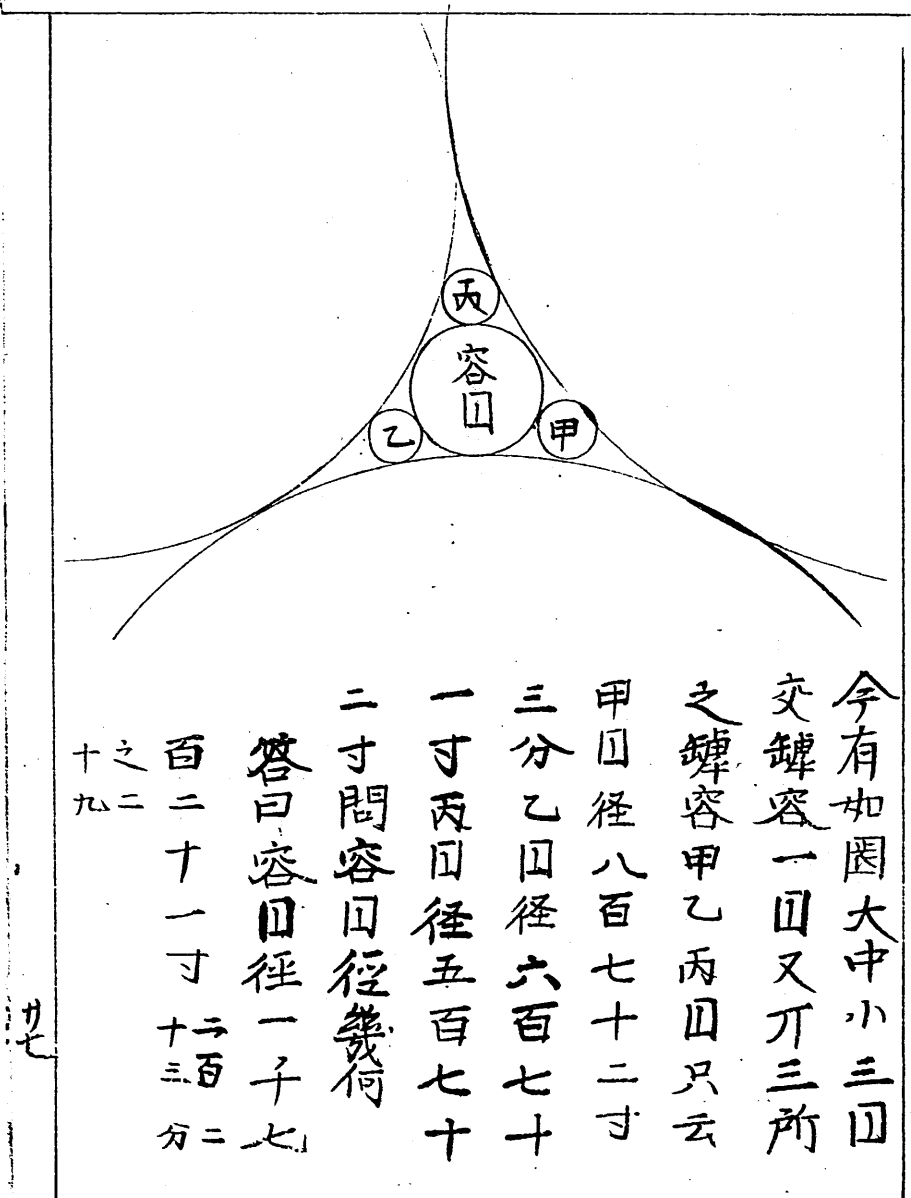 丙
容円
乙
甲
今有如圏大中小三円
交罅容一円又斤三所
之罅容甲乙丙円只云
甲円径八百七十二寸
三分乙円径六百七十
一寸丙円径五百七十
二寸問容円徑幾何
答曰容円徑一千七
百二十一寸二百二十三分
之二十九
廿七